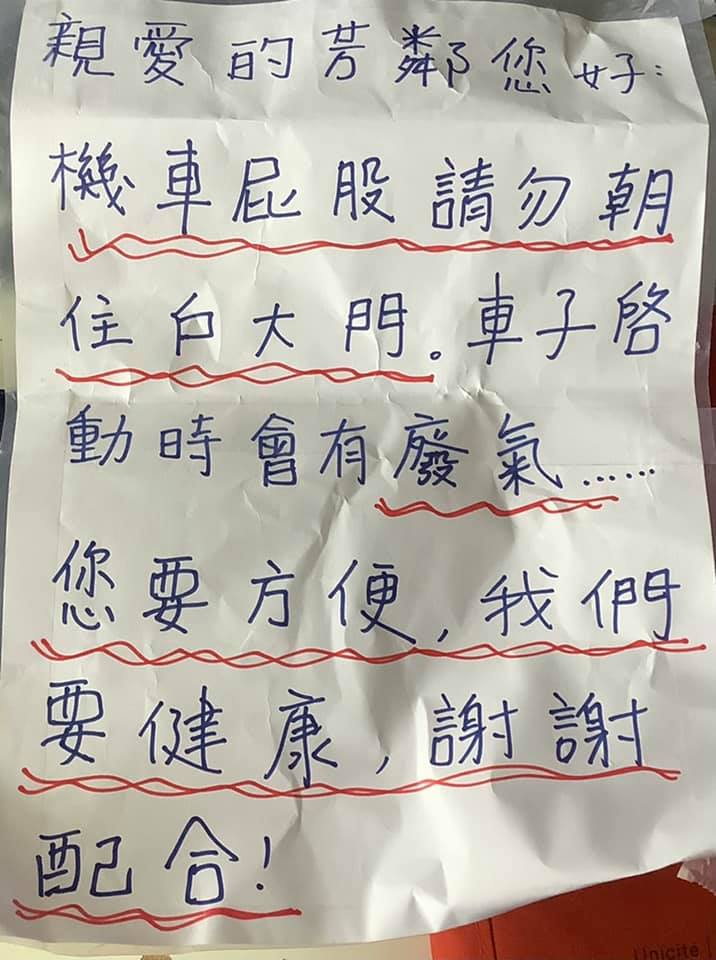 親愛的芳鄰您好：
機車屁股請勿朝
住白大門。車子啓
動時會有廢氣……
您要方便，我們
要健康，謝謝
配合！
Unicité